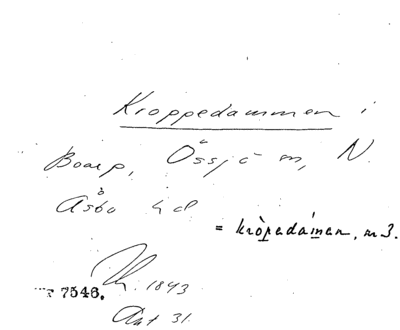 Kroppedammen i
Boarp, Össjö sn, N.
Åsbo hd
= kròpedámen, m3.
1843
7546.
Akt 31.